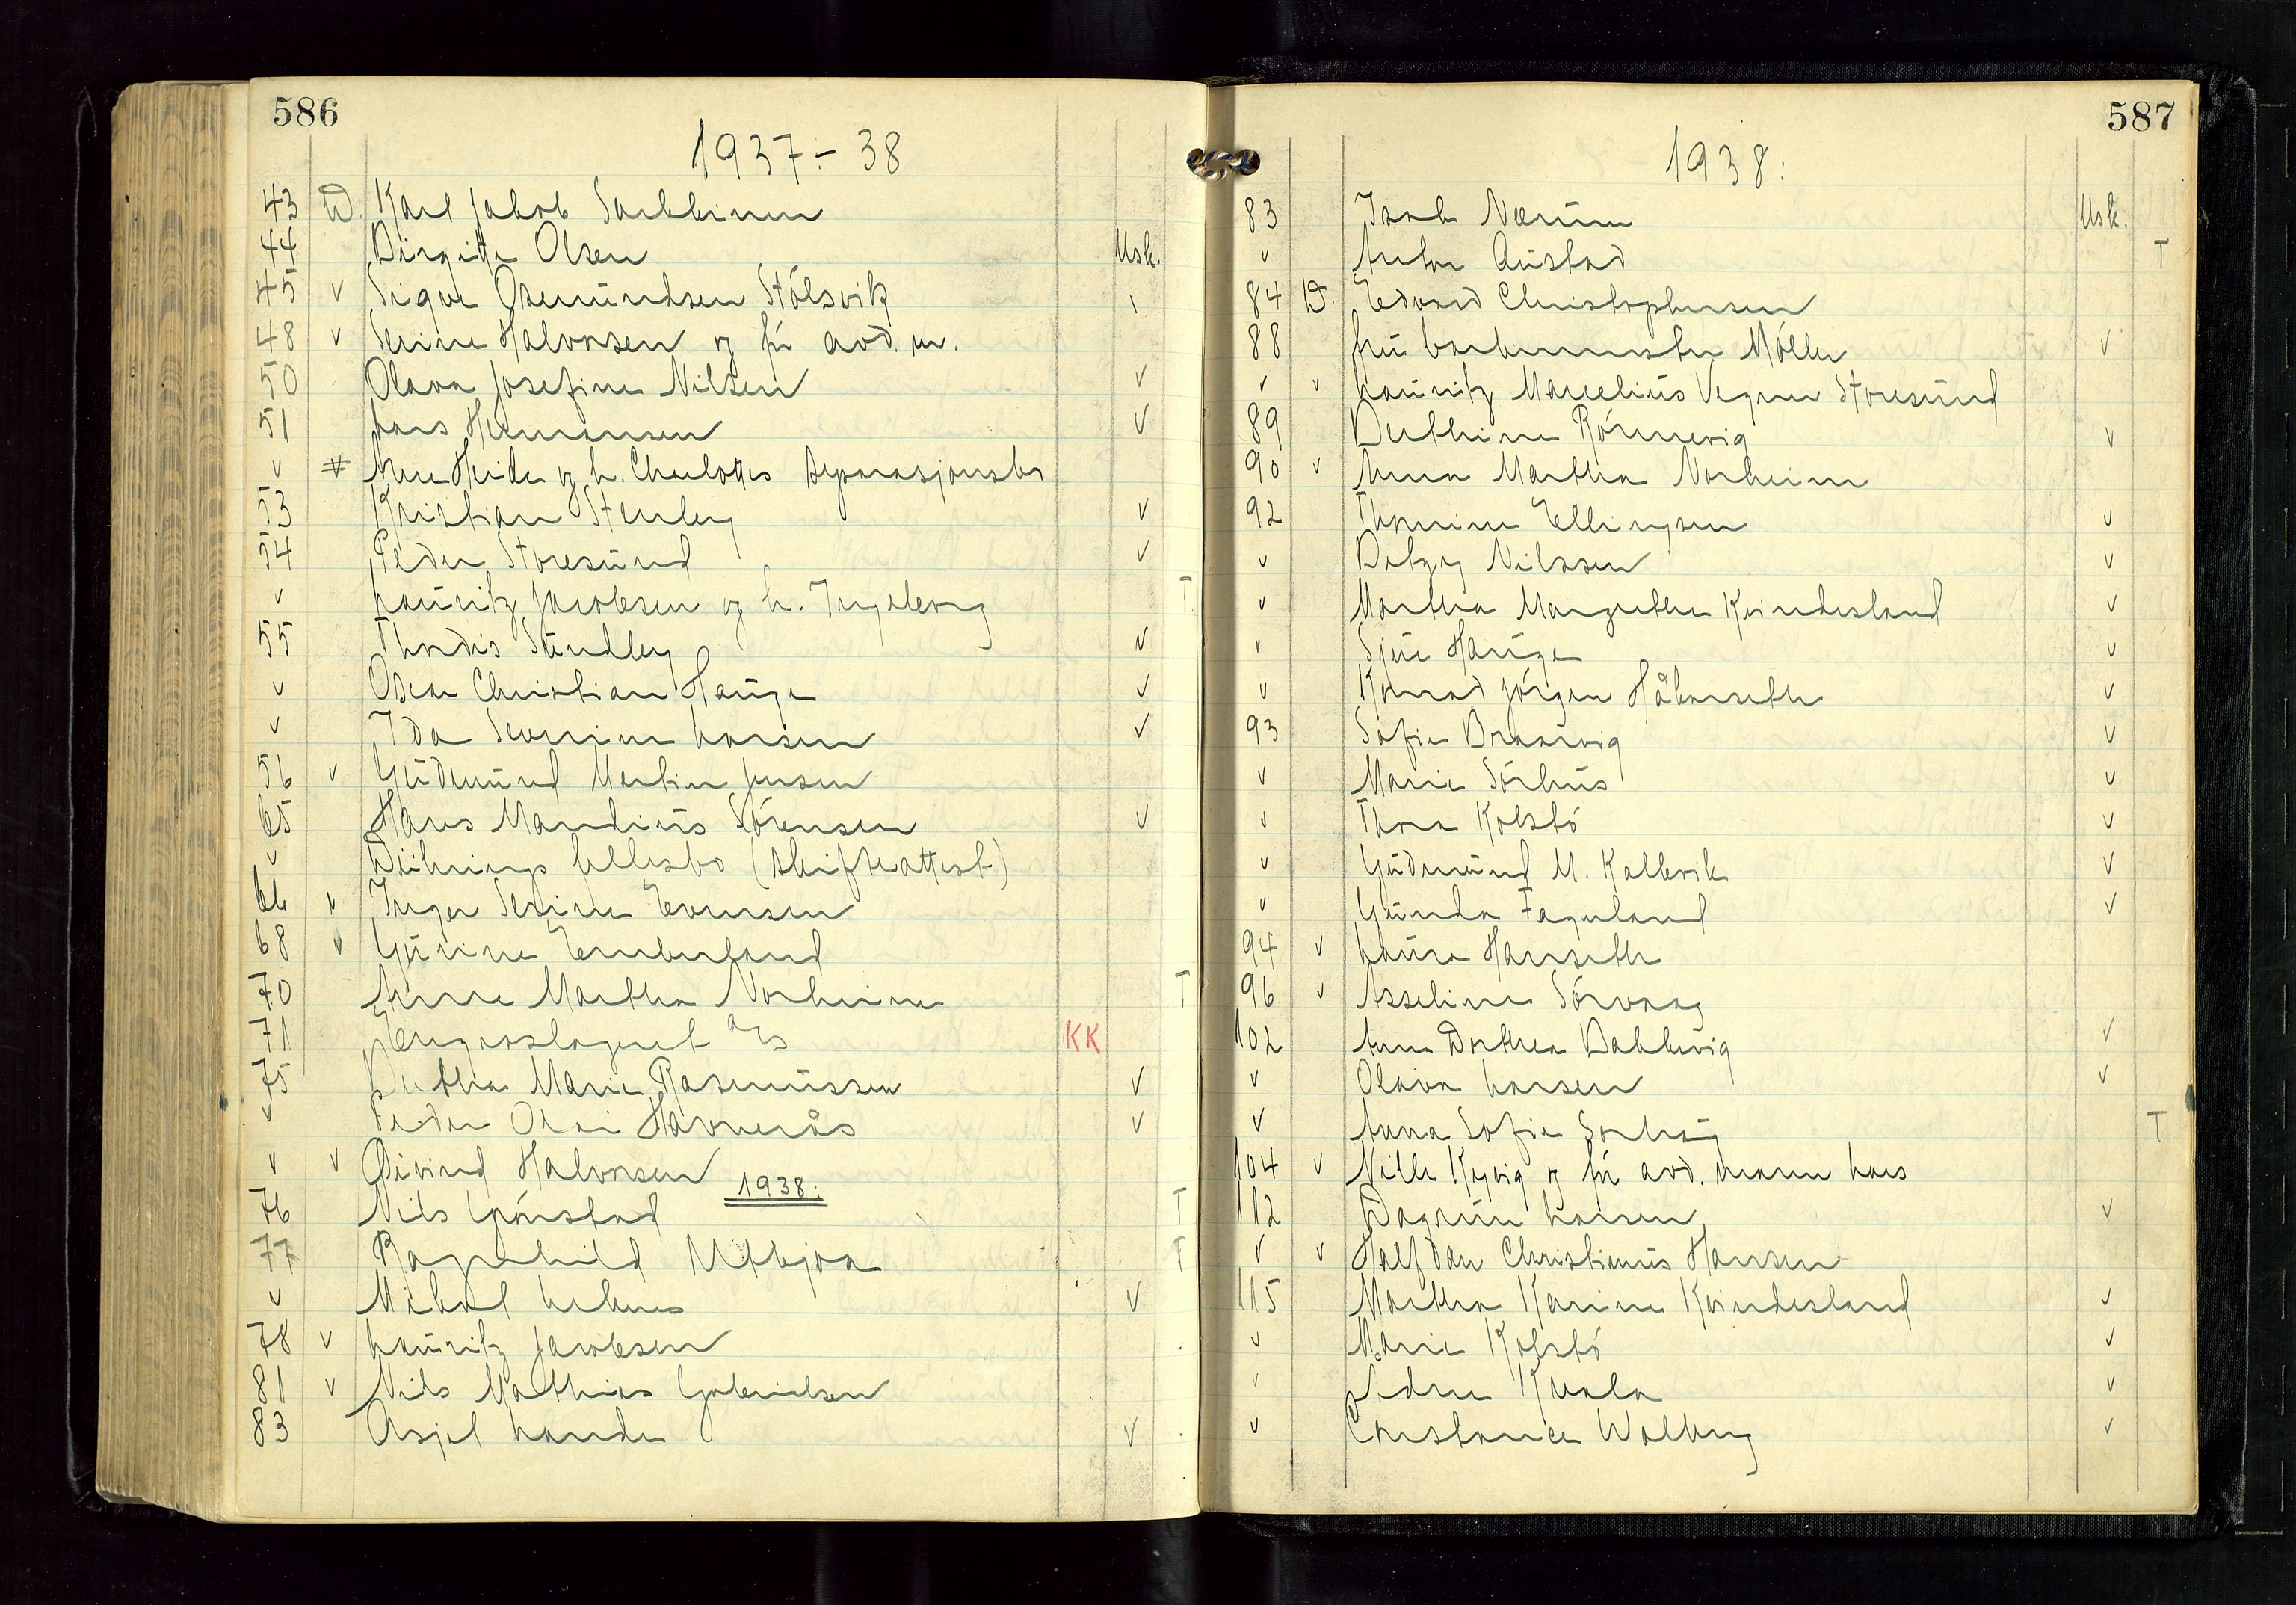 586
1937.- 38
43 D. Karl Jakob
44 Birgitte Olsen Usk.
45 v Sigve Osmundsen Stölsvik
48 v Serine Halvorsen og før avd. m.
50 Olava Josefine Nilsen v
51 Lars Hermansen v
v # Arne Heide og h. Charlottes separasjonsbo
53 Kristian Stenberg v
54 Peder Storesund v
v Lauritz Jacobsen og h. Ingeborg T.
55 Thordis Sundberg v
v Oscar Christian Hauge v
v Ida Severine Larsen v
56 v Gudmund Martin Jensen
65 Hans Mandius Sörensen v
v fellesbo (skifteattest)
66 v Inger Serine Evensen
68 v Gurine Emberland
70 Anne Martha Norheim T
71 A/S KK
75 Berthe Marie Rasmussen v
v Peder Havnerås v
v v Øivind Halvorsen
1938:
76 Nils Gjörstad T
77 Ragnhild Utbjoa T
v Mikal v
78 v Lauritz Jacobsen
81 v Nils Mathias Gabrielsen
83 Asjel Lande v
587
1938:
83 Jacob Nærum Usk.
v Anton Austad T
84 D. Edvard Christophersen
88 fru Möller v
v v Lauritz Marcelius Vegner Storesund
89 Berthine Rönnevig v
90 v Anna Martha Norheim
92 Thomine Ellingsen v
v Betzy Nilssen v
v Martha Margrethe Kvindesland v
v Sjur Hauge v
v Konrad Jörgen Håkonseth v
93 Sofie Braarvig v
v Marie Sörhus v
v Thora Kolstö v
v Gudmund M. Kallevik v
v Gunda Fagerland v
94 v Laura Hanseth
96 v Asseline Sörvaag
102 Anne Dorthea Bakkevig v
v Olava Larsen v
v Anna Sofie Sorhaug T
104 v Nille Kyvig og før avd. mann Lars
112 Dagrun Larsen v
v v Halfdan Christianus Hansen
115 Martha Karine Kvindesland v
v Marie Kolstö v
v Pedrine Kvala v
v Constance Walberg v